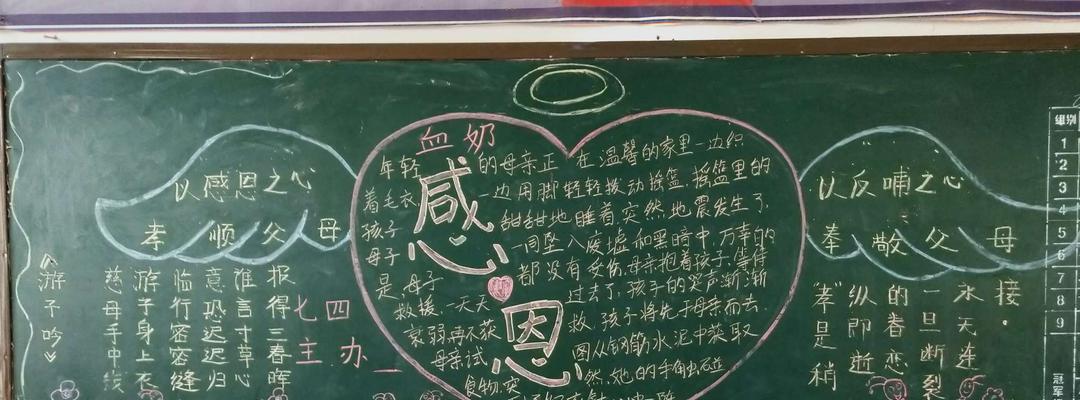 以感恩之心
孝顺父母
《游子吟》
慈母手中线
游子身上衣
临行密密缝
意恐迟迟归
谁言寸草心
报得三春晖
七四
主办
血奶
感
恩
年轻的母亲正在温馨的家里一边织
着毛衣一边用脚轻轻拨动摇篮,摇篮里的
孩子甜甜地睡着,突然,地震发生了,
母子一同坠入废墟和黑暗中,万幸的
是,母子都没有受伤,母亲抱着孩子,等待
救援,一天天过去了,孩子的哭声渐渐
衰弱再不获救,孩子将先于母亲而去,
母亲试图从钢筋水泥中获取
食物,突然,她的手触碰
以反哺之心
奉敬父母
“孝”是稍
纵即逝
的眷恋
一旦断裂
永无连
接。
组别
1
2
3
4
5
6
7
8
9
冠军